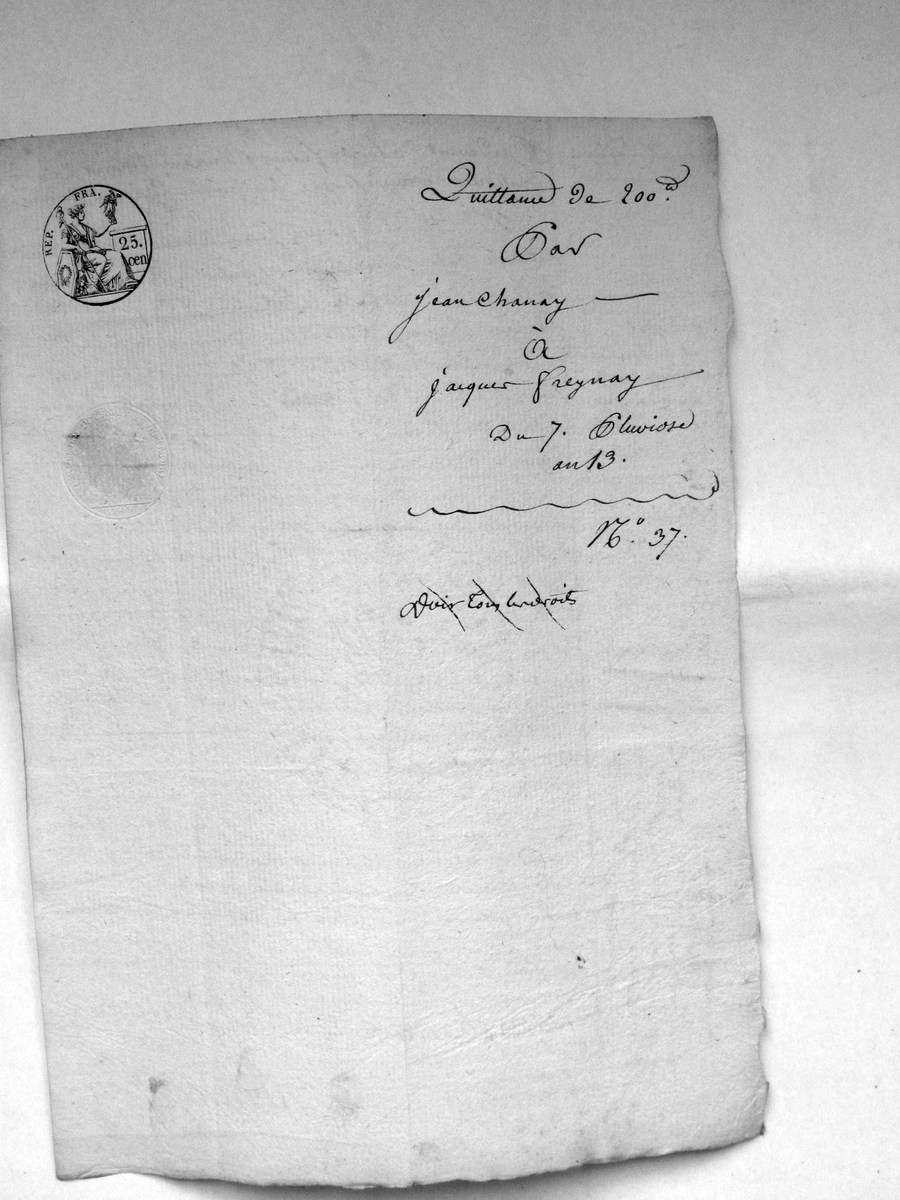 REP. FRA.
25.
cen
Quittance de 200.
Par
jean Chanay
à
jacques Freynay
Du 7. Pluviose
an 13.
N.° 37.
Doit tous les droits